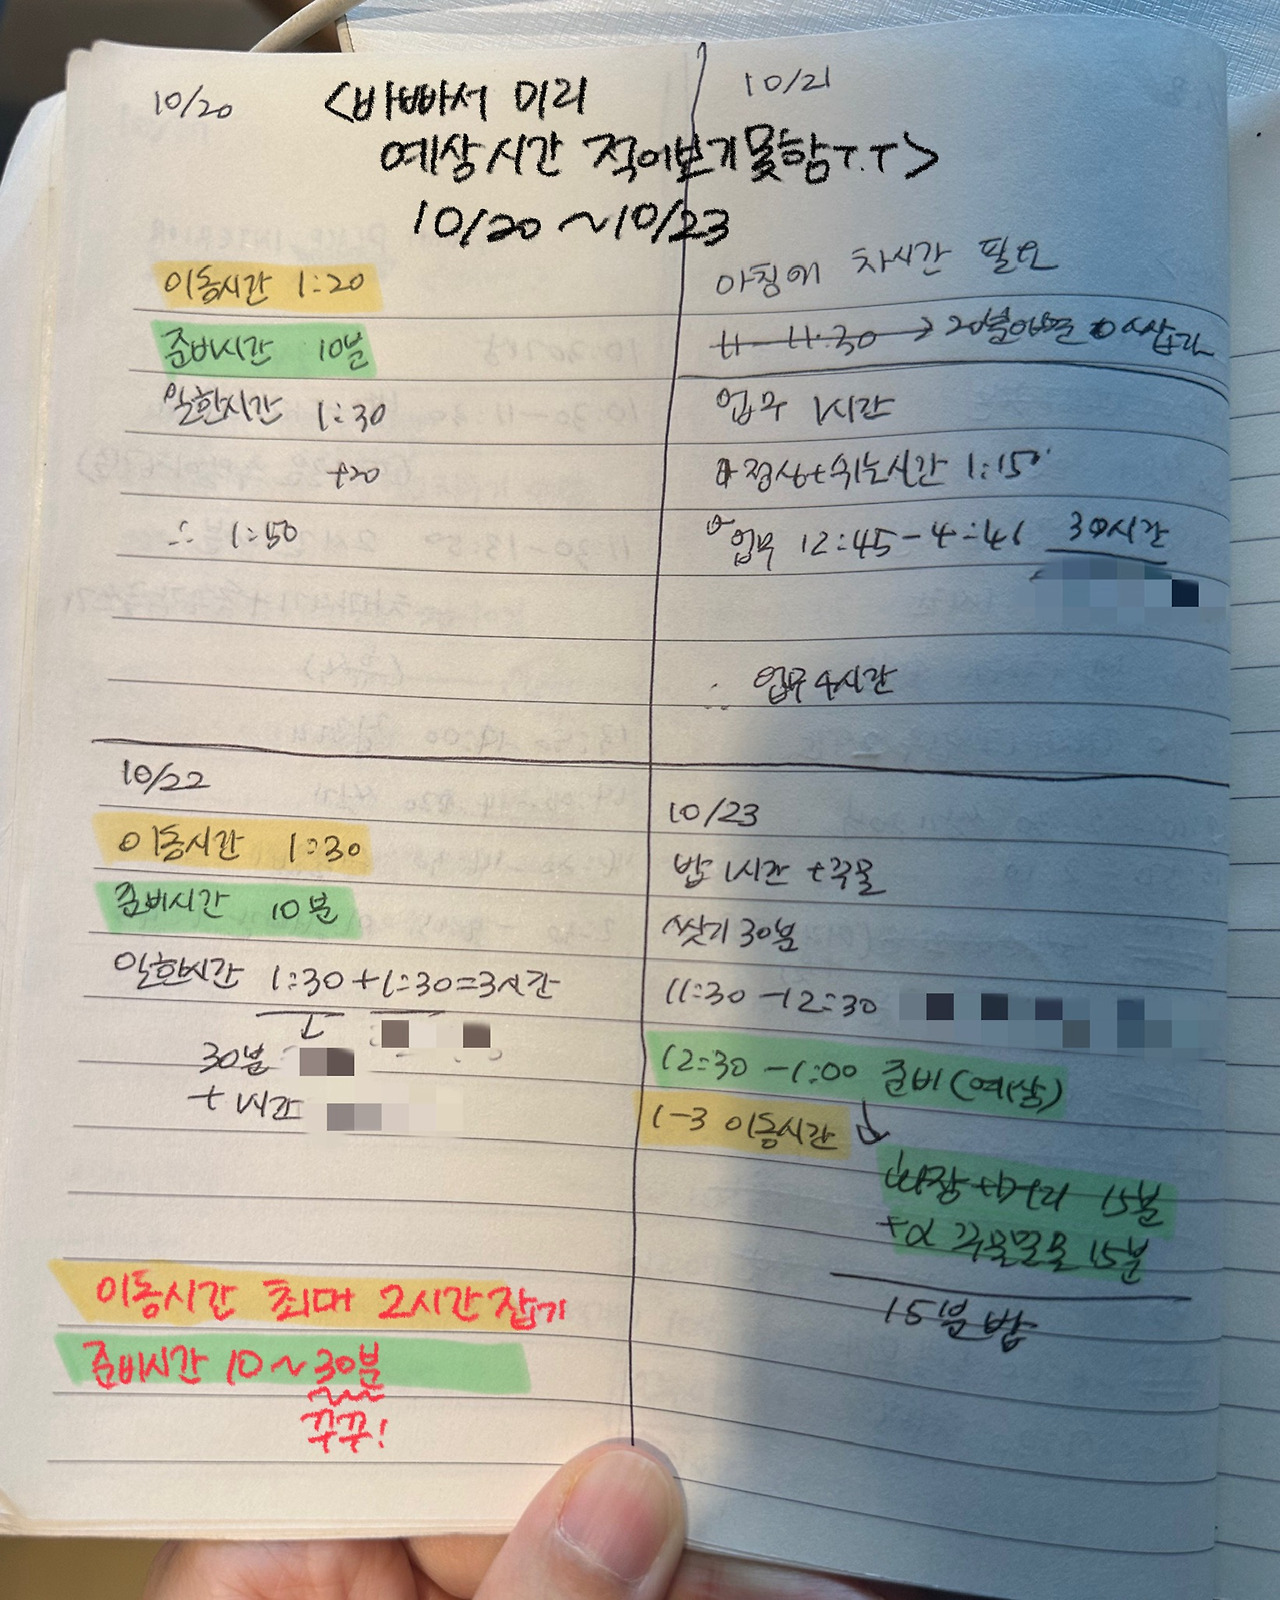 10/20
<바빠서 미리
예상시간 적어보기못함ㅜ.ㅜ>
10/20 ~10/23
이동시간 1:20
준비시간 10분
일한시간 1:30
+20
∴ 1:50
10/21
아침에 차시간 필요
11-11:30 → 20분
업무 1시간
정산+쉬는시간 1:15
업무 12:45-4:41 3시간
∴ 업무 4시간
10/22
이동시간 1:30
준비시간 10분
일한시간 1:30+1:30=3시간
↓
30분
+1시간
이동시간 최대 2시간 잡기
준비시간 10~30분
꾸꾸!
10/23
밥 1시간 +꾸물
씻기 30분
11:30-12:30
12:30-1:00 준비(예상)
1-3 이동시간 ↓
화장+머리 15분
+α 꾸물꾸물 15분
15분 밥